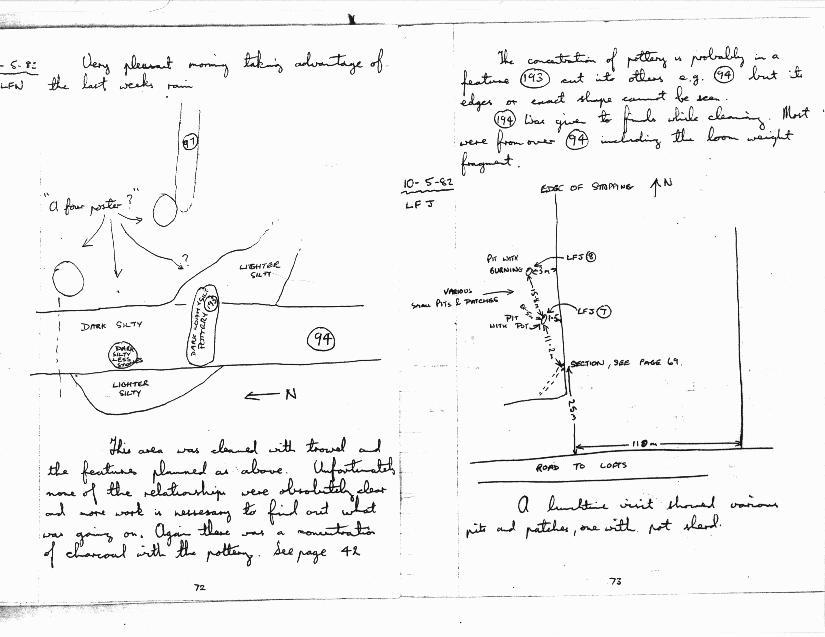 -5-82
LFN
Very pleasant morning taking advantage of
the last weeks rain
97
"A four poster?"
?
LIGHTER
SILTY
DARK SILTY
DARK LOAMY SILT
POTTERY
94
DARK
SILTY
LESS
STONES
LIGHTER
SILTY
← N
This area was cleaned with trowel and
the features planned as above. Unfortunately
none of the relationships were absolutely clear
and more work is necessary to find out what
was going on. Again there was a concentration
of charcoal with the pottery. See page 42
72
The concentration of pottery is probably in a
feature 193 cut into others e.g. 94 but its
edges or exact shape cannot be seen.
194 was given to finds while cleaning. Most
were from over 94 including the loom weight
fragment.
10-5-82
LFJ
EDGE OF STRIPPING ↑N
PIT WITH
BURNING
3m
LFJ 8
VARIOUS
SMALL PITS & PATCHES
15.8m
PIT
WITH POT
1.5
LFJ 7
11.2m
SECTION, SEE PAGE 69.
25m
118m
ROAD TO LOFTS
A lunchtime visit showed various
pits and patches, one with pot sherd.
73